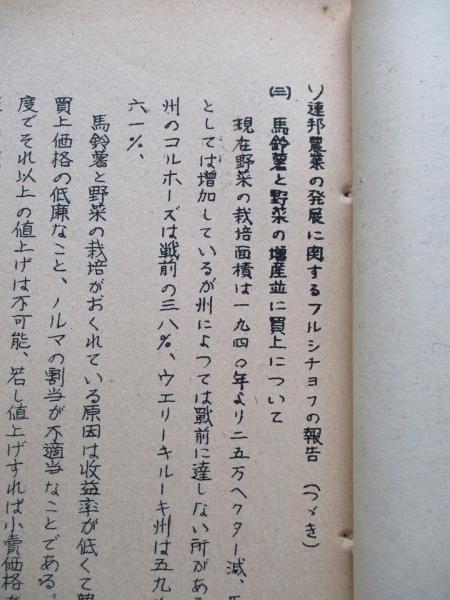 ソ連邦農業の発展に関するフルシチョフの報告（つゞき）
㈢ 馬鈴薯と野菜の増産並に買上について
現在野菜の栽培面積は一九四〇年より二五万ヘクター減、
としては増加しているが州によつては戰前に達しない所があ
州のコルホーズは戦前の三八％、ウエリーキルーキ州は五九
六一％、
馬鈴薯と野菜の栽培がおくれている原因は收益率が低くて
買上価格の低廉なこと、ノルマの割当が不適当なことである。
度でそれ以上の値上げは不可能、若し値上げすれば小賣価格